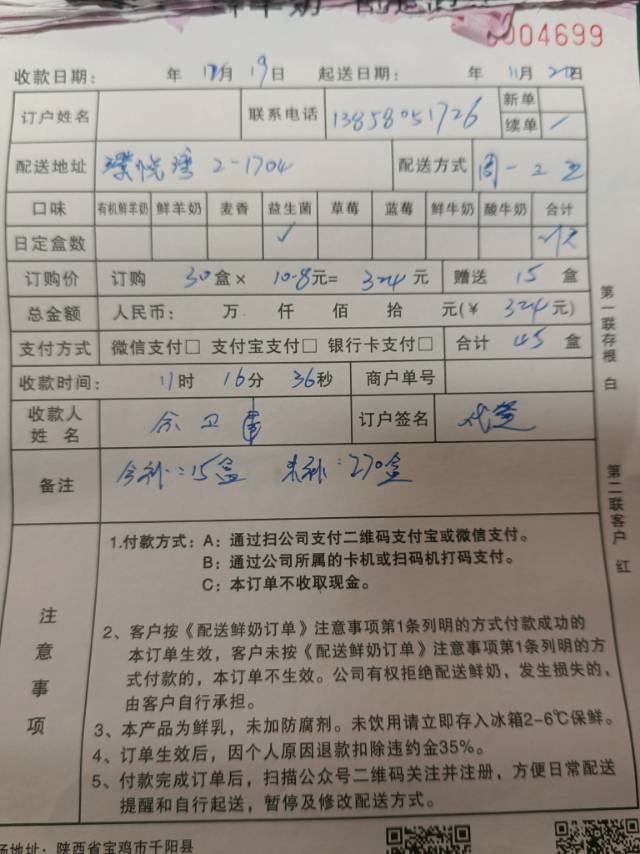 0004699
收款日期: 年 11月 19日 起送日期: 年 11月 20日
订户姓名 联系电话 13858051726 新单
续单 /
配送地址 璞悦湾 2-1704 配送方式 周一
口味 有机鲜羊奶 鲜羊奶 麦香 益生菌 草莓 蓝莓 鲜牛奶 酸牛奶 合计
日定盒数 ✓
订购价 订购 30 盒× 10.8元= 324 元 赠送 15 盒
总金额 人民币: 万 仟 佰 拾 元(¥ 324元)
支付方式 微信支付□ 支付宝支付□ 银行卡支付□ 合计 45 盒
收款时间: 11时 16分 36秒 商户单号
收款人姓名 余卫 订户签名
备注 今补:15盒 未补:270盒
注意事项
1.付款方式: A: 通过扫公司支付二维码支付宝或微信支付。
B: 通过公司所属的卡机或扫码机打码支付。
C: 本订单不收取现金。
2、客户按《配送鲜奶订单》注意事项第1条列明的方式付款成功的
本订单生效，客户未按《配送鲜奶订单》注意事项第1条列明的方
式付款的，本订单不生效。公司有权拒绝配送鲜奶，发生损失的，
由客户自行承担。
3、本产品为鲜乳，未加防腐剂。未饮用请立即存入冰箱2-6℃保鲜。
4、订单生效后，因个人原因退款扣除违约金35%。
5、付款完成订单后，扫描公众号二维码关注并注册，方便日常配送
提醒和自行起送，暂停及修改配送方式。
第一联存根 白
第二联客户 红
场地址: 陕西省宝鸡市千阳县